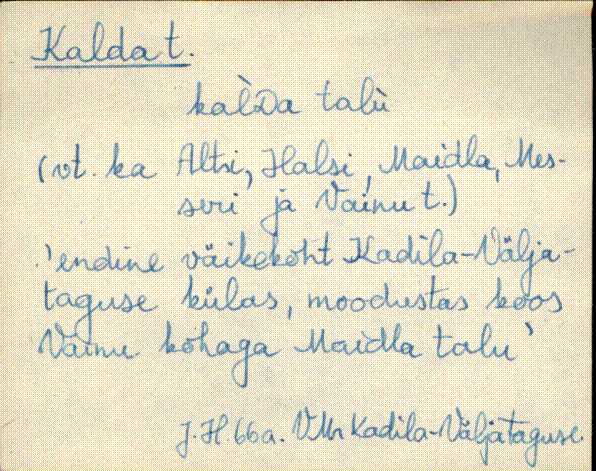 Kalda t.
kàlDa talù
(vt. ka Altsi, Halsi, Maidla, Mes-
seri ja Vainu t.)
'endine väikekoht Kadila-Välja-
taguse külas, moodustas koos
Vainu kohaga Maidla talu'
J. H. 66a. VMr Kadila-Väljataguse.